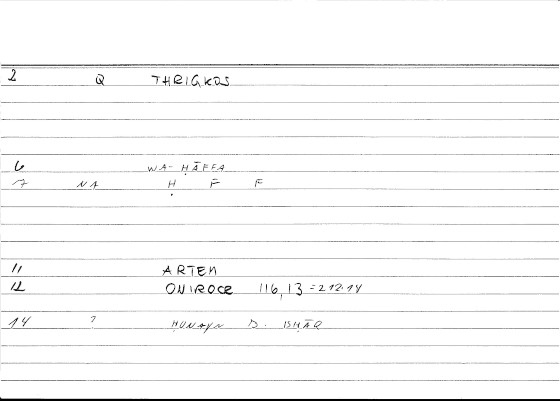 2 Q THRIGKOS
6 WA-ḤĀFFA
7 NA Ḥ F̄ F
11 ARTEM
12 ONIROCR 116,13 = 212.14
14 ? ḤUNAYN B. ISḤĀQ